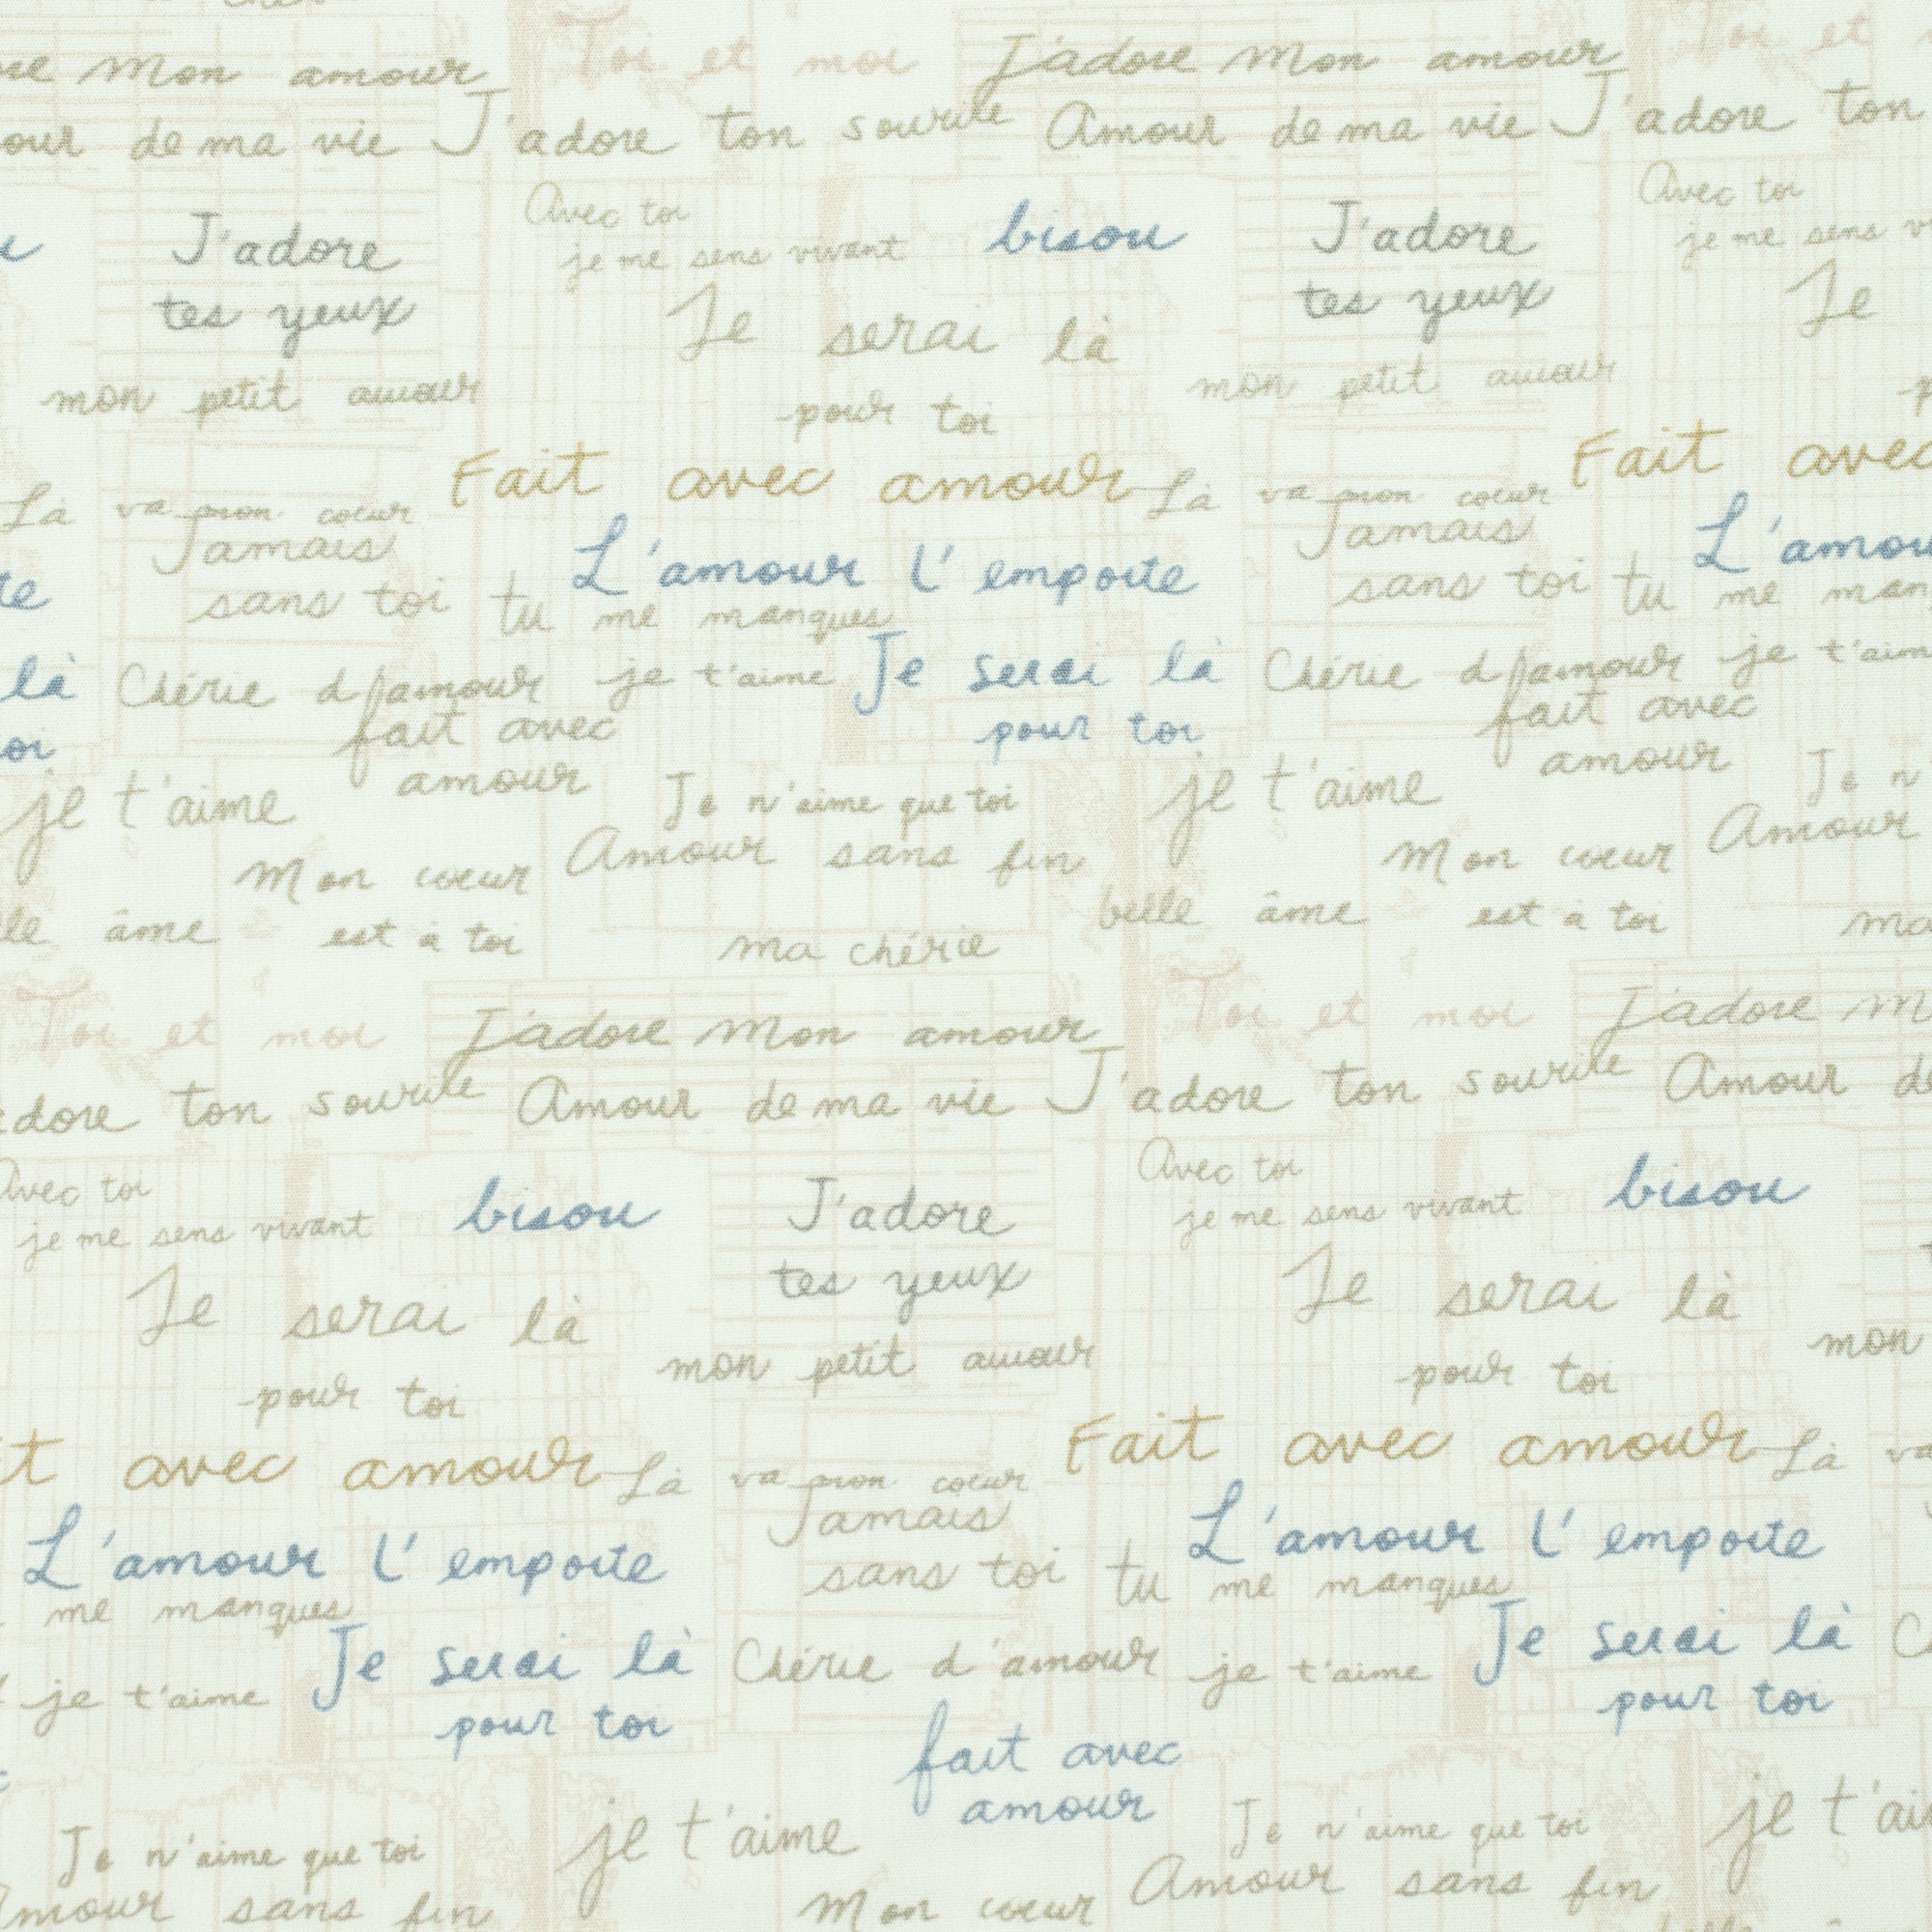 mon amour Toi et moi J'adore mon amour Toi et
de ma vie J'adore ton sourire Amour de ma vie J'adore ton
Avec toi
Avec toi
J'adore je me sens vivant bisou J'adore je me sens
tes yeux Je serai là tes yeux Je
mon petit amour pour toi mon petit amour
Fait avec amour Fait avec
Là va mon coeur Là va mon coeur
Jamais L'amour l'emporte Jamais
sans toi tu me manques sans toi tu me
là Chérie d'amour je t'aime Je serai là Chérie d'amour je t'aime
fait avec pour toi fait avec
je t'aime amour Je n'aime que toi je t'aime amour Je
Mon coeur Amour sans fin Mon coeur Amour
âme est à toi ma chérie belle âme est à toi ma
Toi et moi J'adore mon amour Toi et moi J'adore
ton sourire Amour de ma vie J'adore ton sourire Amour
Avec toi Avec toi
je me sens vivant bisou J'adore je me sens vivant bisou
Je serai là tes yeux Je serai là
pour toi mon petit amour pour toi mon
avec amour Là va mon coeur Fait avec amour Là
L'amour l'emporte Jamais L'amour l'emporte
me manques sans toi tu me manques
je t'aime Je serai là Chérie d'amour je t'aime Je serai là
pour toi pour toi
fait avec
Je n'aime que toi je t'aime amour Je n'aime que toi je
Amour sans fin Mon coeur Amour sans fin